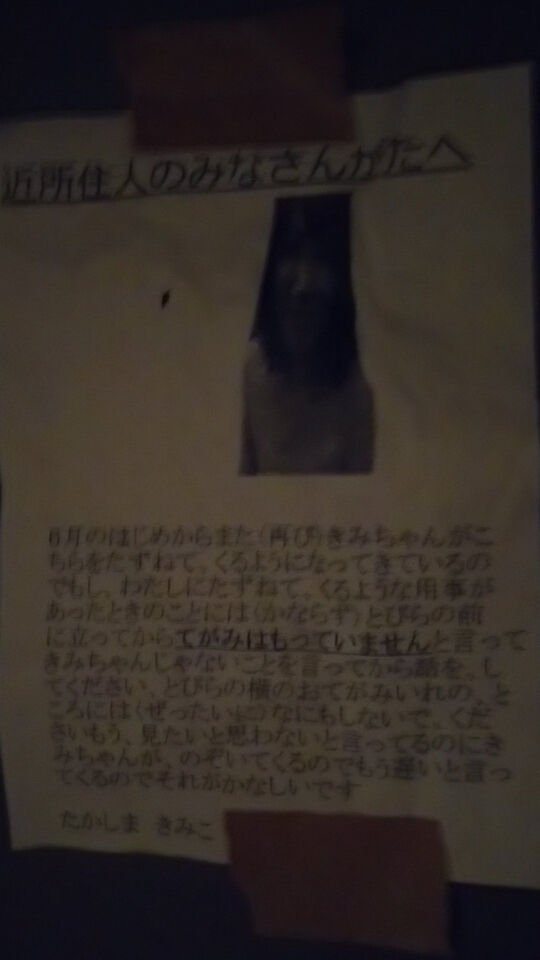 近所住人のみなさんがたへ
6月のはじめからまた(再び)きみちゃんがこ
ちらをたずねて。くるようになってきているの
でもし、わたしにたずねて。くるような用事が
あったときのことには(かならず)とびらの前
に立ってからてがみはもっていませんと言って
きみちゃんじゃないことを言ってから話を。し
てください、とびらの横のおてがみいれの、と
ころには(ぜったいに)なにもしないで。くだ
さいもう、見たいと思わないと言ってるのにき
みちゃんが、のぞいてくるのでもう遅いと言っ
てくるのでそれがかなしいです
たかしま きみこ